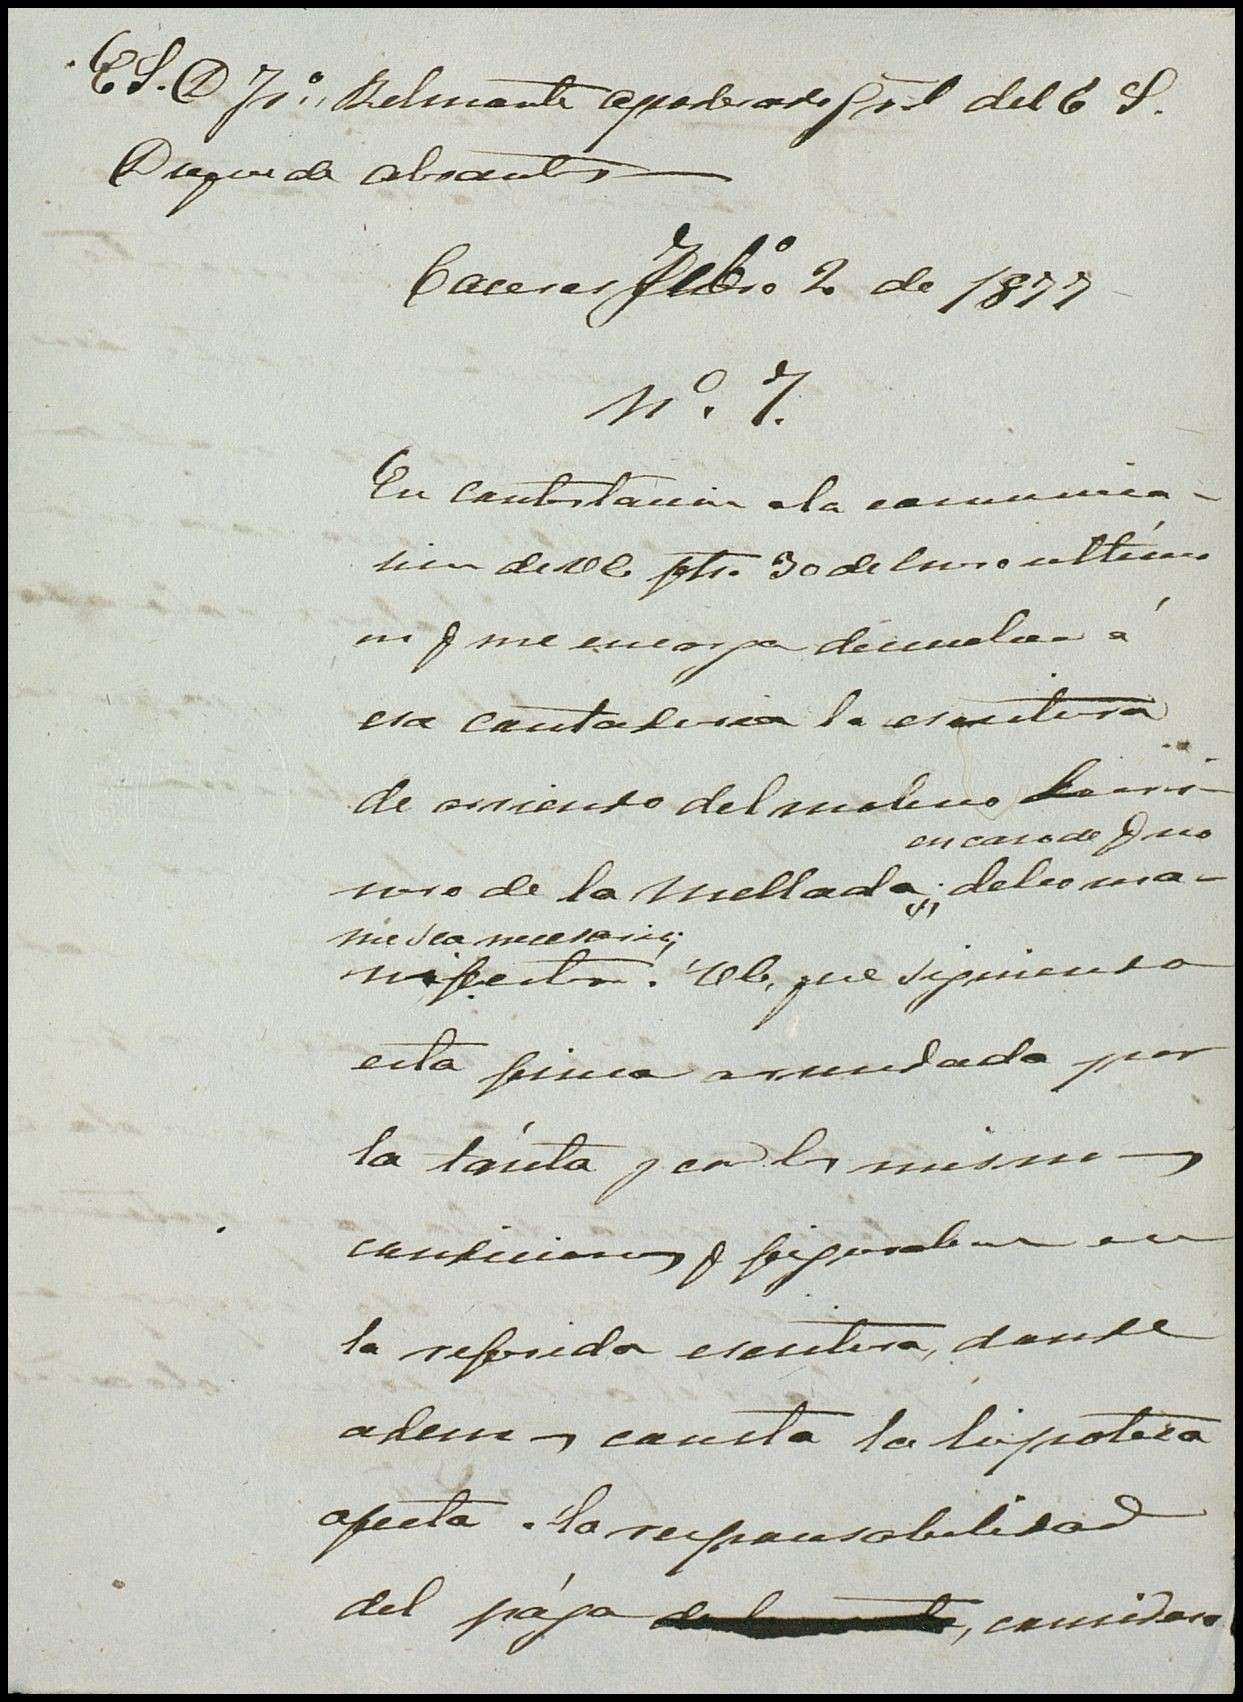 E S. D Frº. Belmonte apoderado Gral del E S.
Duque de Abrantes
Caceres Febrº. 2 de 1877
Nº. 7.
En contestacion a la comunica-
cion de VE fha. 30 de Enero ultimo
en q me encarga devuelva á
esa contaduria la escritura
de arriendo del molino
en caso de q no
nero de la Mellada; debo ma-
me sea necesaria;
nifestar. VE. que siguiendo
esta finca arrendada por
la tácita y con las mismas
condiciones q figuraban en
la referida escritura, donde
ademas consta la hipoteca
afecta a la responsabilidad
del pago, considero